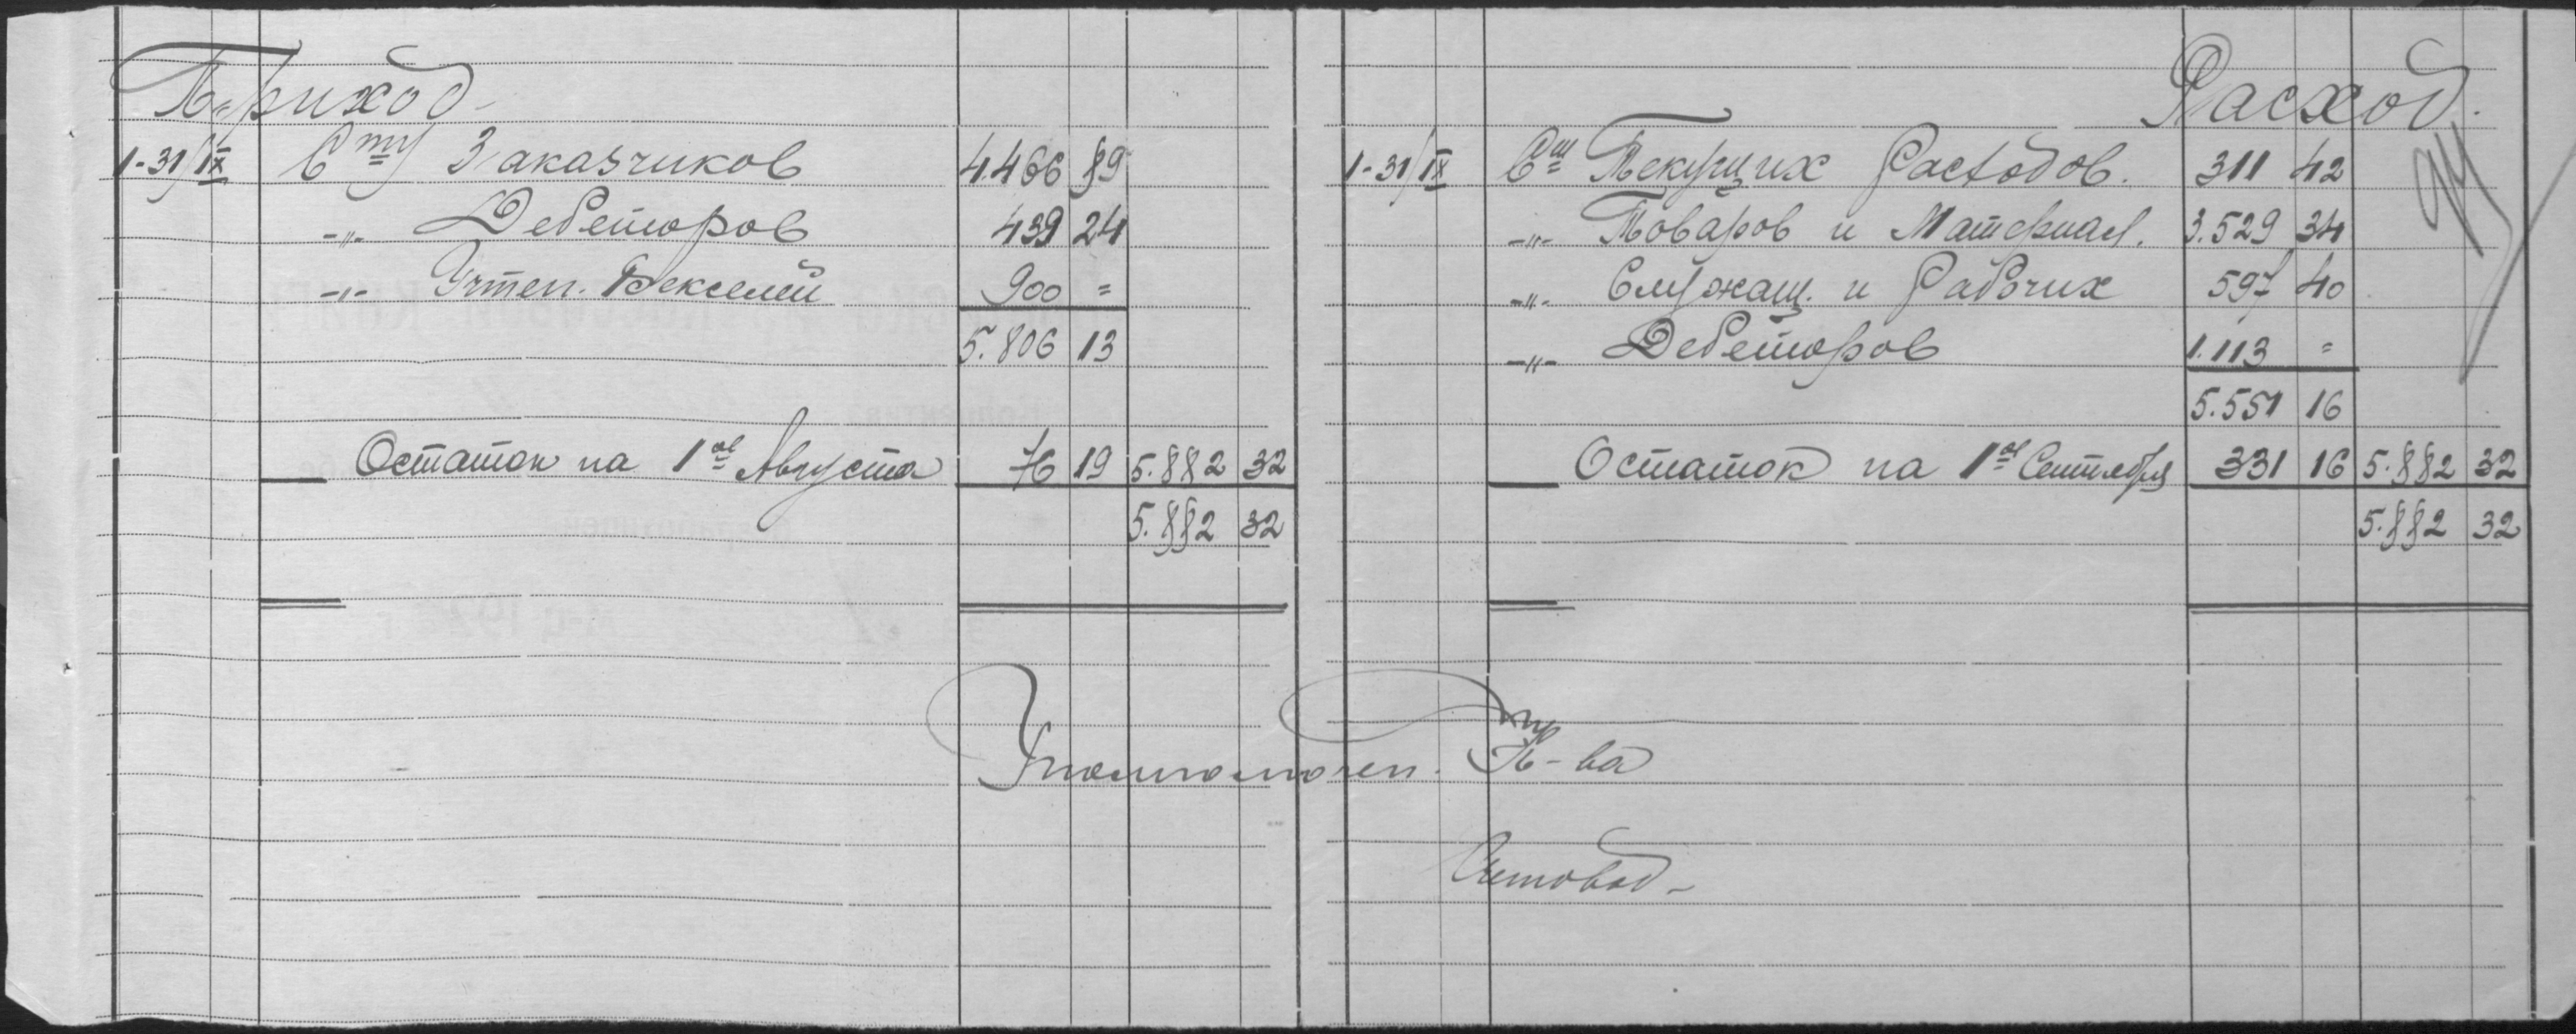 Приход
1-31/IX Сту Заказчиков 4.466 89
-"- Дебеторов 439 24
-"- Учтен. Векселей 900 =
5.806 13
Остаток на 1ое Августа 76 19 5.882 32
5.882 32
Расход.
1-31/IX Сту Текущих Расходов. 311 42
-"- Товаров и Материал. 3.529 34
-"- Служащ. и Рабочих 597 40
-"- Дебеторов 1.113 =
5.551 16
Остаток на 1ое Сентября 331 16 5.882 32
5.882 32
Уполномочен. К-ва
Счетовод